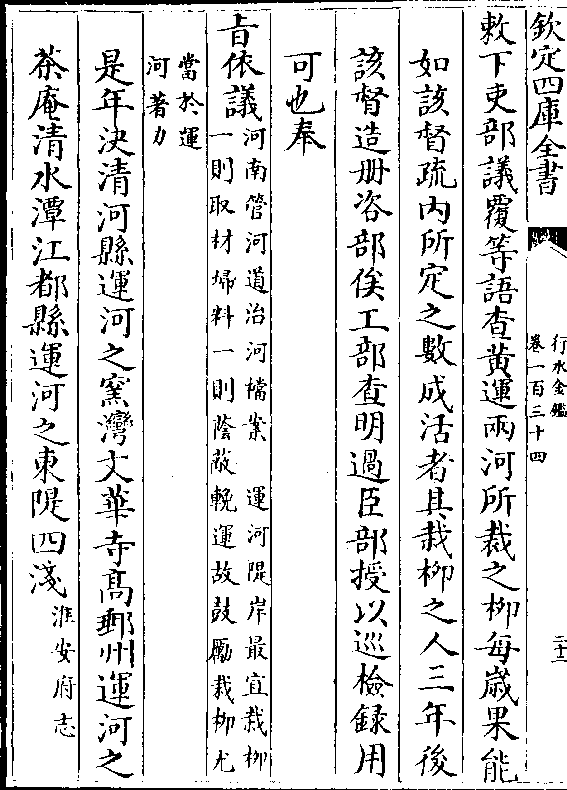 欽定四庫全書
行水金鑑
卷一百三十四
二十二
敕下吏部議覆等語查黃運兩河所栽之柳每歲果能
如該督疏內所定之數成活者其栽柳之人三年後
該督造册咨部俟工部查明過臣部授以巡檢録用
可也奉
㫖依議河南管河道治河檔案　運河隄岸最宜栽柳
一則取材埽料一則蔭蔽輓運故鼓勵栽柳尤
當於運
河著力
是年決清河縣運河之窯灣文華寺高郵州運河之
茶庵清水潭江都縣運河之東隄四淺淮安府志